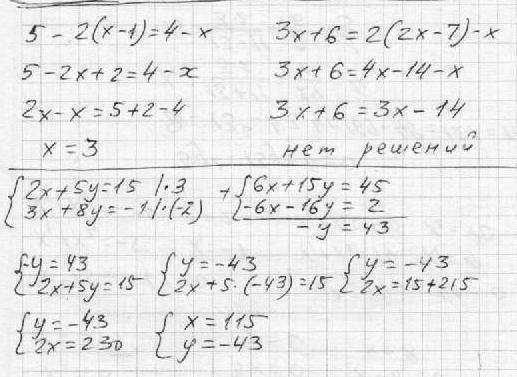 5 - 2(x-1) = 4 - x
5 - 2x + 2 = 4 - x
2x - x = 5 + 2 - 4
x = 3
3x + 6 = 2(2x - 7) - x
3x + 6 = 4x - 14 - x
3x + 6 = 3x - 14
нет решений
{2x + 5y = 15 |·3
{3x + 8y = -1 |·(-2)
+ {6x + 15y = 45
{-6x - 16y = 2
-y = 43
{-y = 43
{2x + 5y = 15
{y = -43
{2x + 5·(-43) = 15
{y = -43
{2x = 15 + 215
{y = -43
{2x = 230
{x = 115
{y = -43